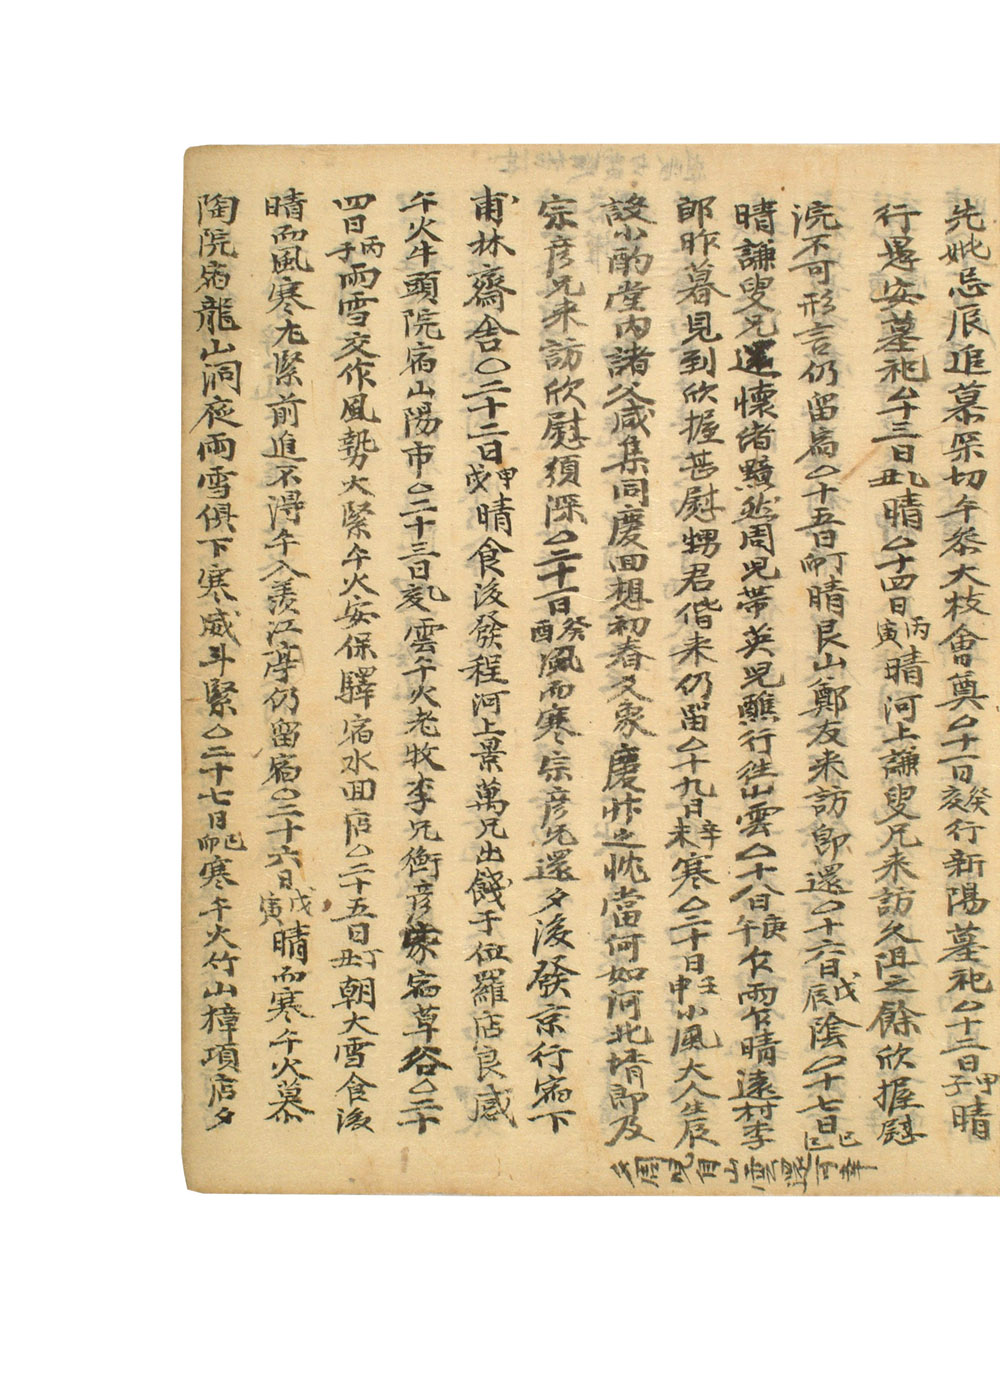 先妣忌辰追慕深切午祭大枝會奠△十一日癸亥行新陽墓祀△十二日甲子晴
行遇安墓祀△十三日乙丑晴△十四日丙寅晴河上謙叟兄来訪久阻之餘欣握慰
浣不可形言仍留宿△十五日丁卯晴艮山鄭友来訪卽還△十六日戊辰陰△十七日己巳
晴謙叟兄還懷緖黯然周兒帶英兒醮行徃山雲△十八日庚午乍雨乍晴遠村李
郎昨暮見到欣握甚慰甥君偕来仍留△十九日辛未寒△二十日壬申小風大人生辰
設小酌堂內諸父咸集同慶回想初春久象慶忭之忱當何如河北堉郎及
宗彦兄来訪欣慰須深△二十一日癸酉風而寒宗彦兄還夕後發京行宿下
甫林齋舍○二十二日甲戌晴食後發程河上景萬兄出餞于位羅店良感
午火牛頭院宿山陽市△二十三日乙亥雲午火老牧李兄衡彦家宿草谷△二十
四日丙子雨雪交作風勢大緊午火安保驛宿水回店△二十五日丁丑朝大雪食後
晴而風寒尤緊前進不得午入羨江亭仍留宿○二十六日戊寅晴而寒午火慕
陶院宿龍山洞夜雨雪俱下寒威斗緊△二十七日己卯寒午火竹山獐項店夕
周兒自山雲還可幸